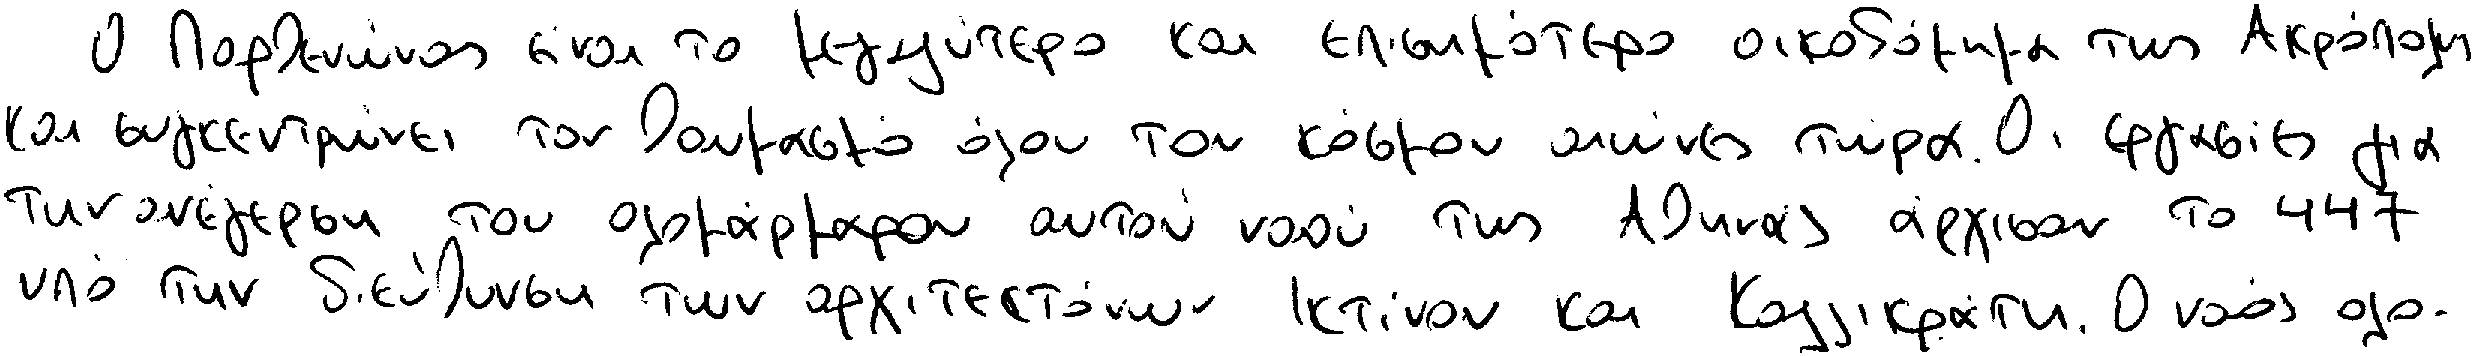 Ο Παρθενώνας είναι το μεγαλύτερο και επισημότερο οικοδόμημα της Ακρόπολης
και συγκεντρώνει τον θαυμασμό όλου του κόσμου αιώνες τώρα. Οι εργασίες για
την ανέγερση του ολομάρμαρου αυτού ναού της Αθηνάς άρχισαν το 447
υπό την διεύθυνση των αρχιτεκτόνων Ικτίνου και Καλλικράτη. Ο ναός ολο-